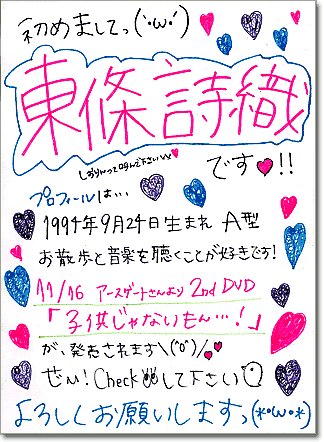 初めましてっ(`・ω・´)
東條詩織
しおりんって呼んで下さいww
です♥!!
プロフィールは…
1994年9月24日生まれ A型
お散歩と音楽を聴くことが好きです!
11/16 アースゲートさんより 2nd DVD
「子供じゃないもん…!」
が、発売されます\(^o^)/
ぜひ! Check して下さい
よろしくお願いしますっ(*・ω・*)